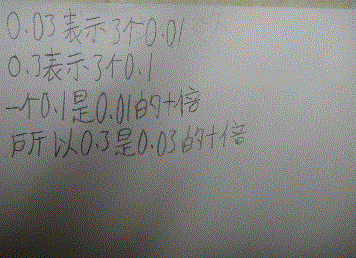 0.03表示3个0.01
0.3表示3个0.1
一个0.1是0.01的十倍
所以0.3是0.03的十倍